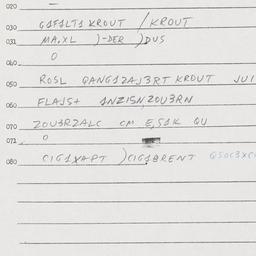 020
030 GAFALTA KROUT / KROUT
031 MA,XL )-DER )DUS
0
040
050 ROSL GANGAZAJ3RT KROUT JUI
060 FLAJS+ ANZISN,ZOU3RN
070 ZOU3RZALC CM E,SAK QU
071 0
080 CIGAXAPT )CIGABRENT